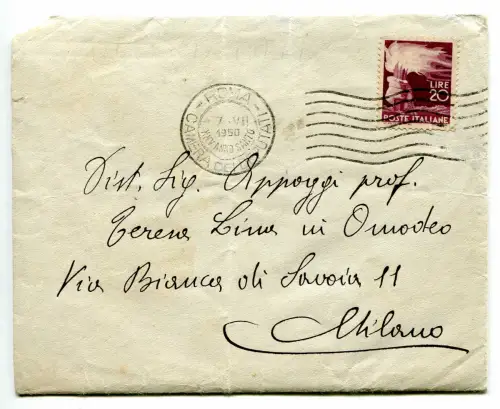 ROMA
CAMERA DEI DEPUTATI
7-VII
1950
XXV ANNO SANTO
LIRE
20
POSTE ITALIANE
Dist. Sig. Appoggi prof.
Teresa Lina in Omodeo
Via Bianca di Savoia 11
Milano